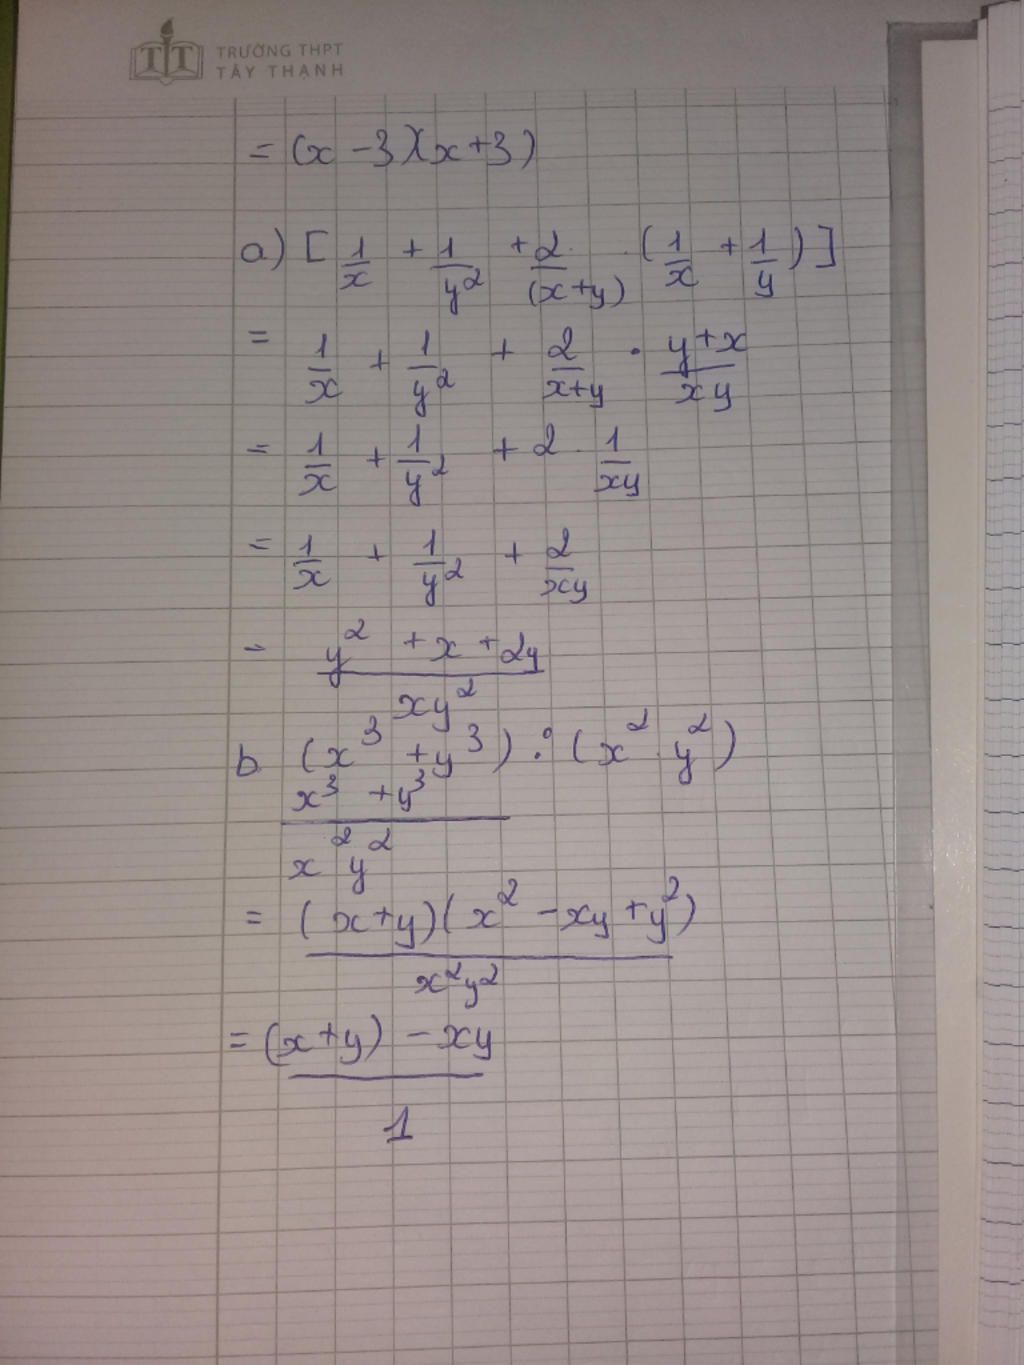 TRƯỜNG THPT
TÂY THẠNH
= (x - 3)(x + 3)
a) [ 1/x + 1/y² + 2/(x+y) · (1/x + 1/y) ]
= 1/x + 1/y² + 2/x+y · y+x/xy
= 1/x + 1/y² + 2 · 1/xy
= 1/x + 1/y² + 2/xy
= y² + x + 2y / xy²
b (x³ + y³) : (x² · y²)
x³ + y³ / x² y²
= (x+y)(x² - xy + y²) / x²y²
= (x+y) - xy / 1